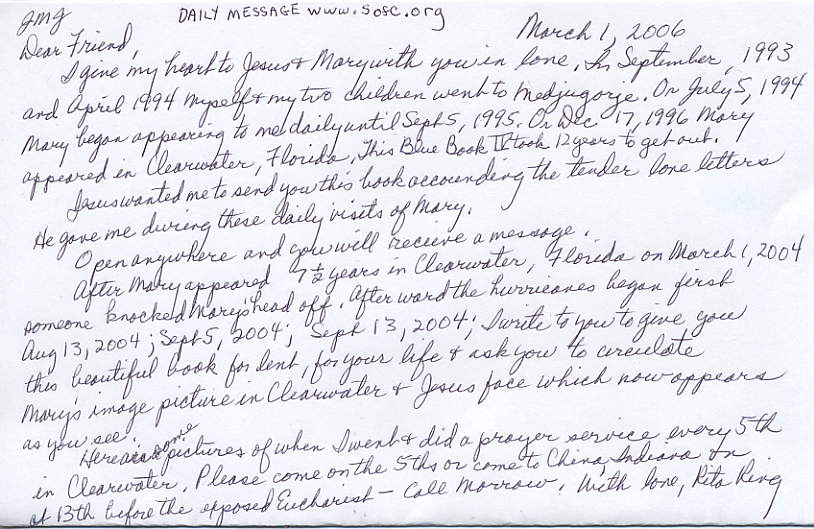 JMJ
DAILY MESSAGE www.sofc.org
March 1, 2006
Dear Friend,
I give my heart to Jesus & Mary with you in love. In September, 1993
and April 1994 myself & my two children went to Medjugorje. On July 5, 1994
Mary began appearing to me daily until Sept 5, 1995. On Dec 17, 1996 Mary
appeared in Clearwater, Florida, This Blue Book IV took 12 years to get out.
Jesus wanted me to send you this book accounding the tender love letters
He gave me during these daily visits of Mary.
Open anywhere and you will receive a message.
After Mary appeared 7½ years in Clearwater, Florida on March 1, 2004
someone knocked Mary's head off. Afterward the hurricanes began first
Aug 13, 2004; Sept 5, 2004; Sept 13, 2004; I write to you to give you
this beautiful book for lent, for your life & ask you to circulate
Mary's image picture in Clearwater & Jesus face which now appears
as you see.
Here are some pictures of when I went & did a prayer service every 5th
in Clearwater. Please come on the 5ths or come to China, Indiana on
at 13th before the exposed Eucharist – Call Morrow. With love, Rita Ring